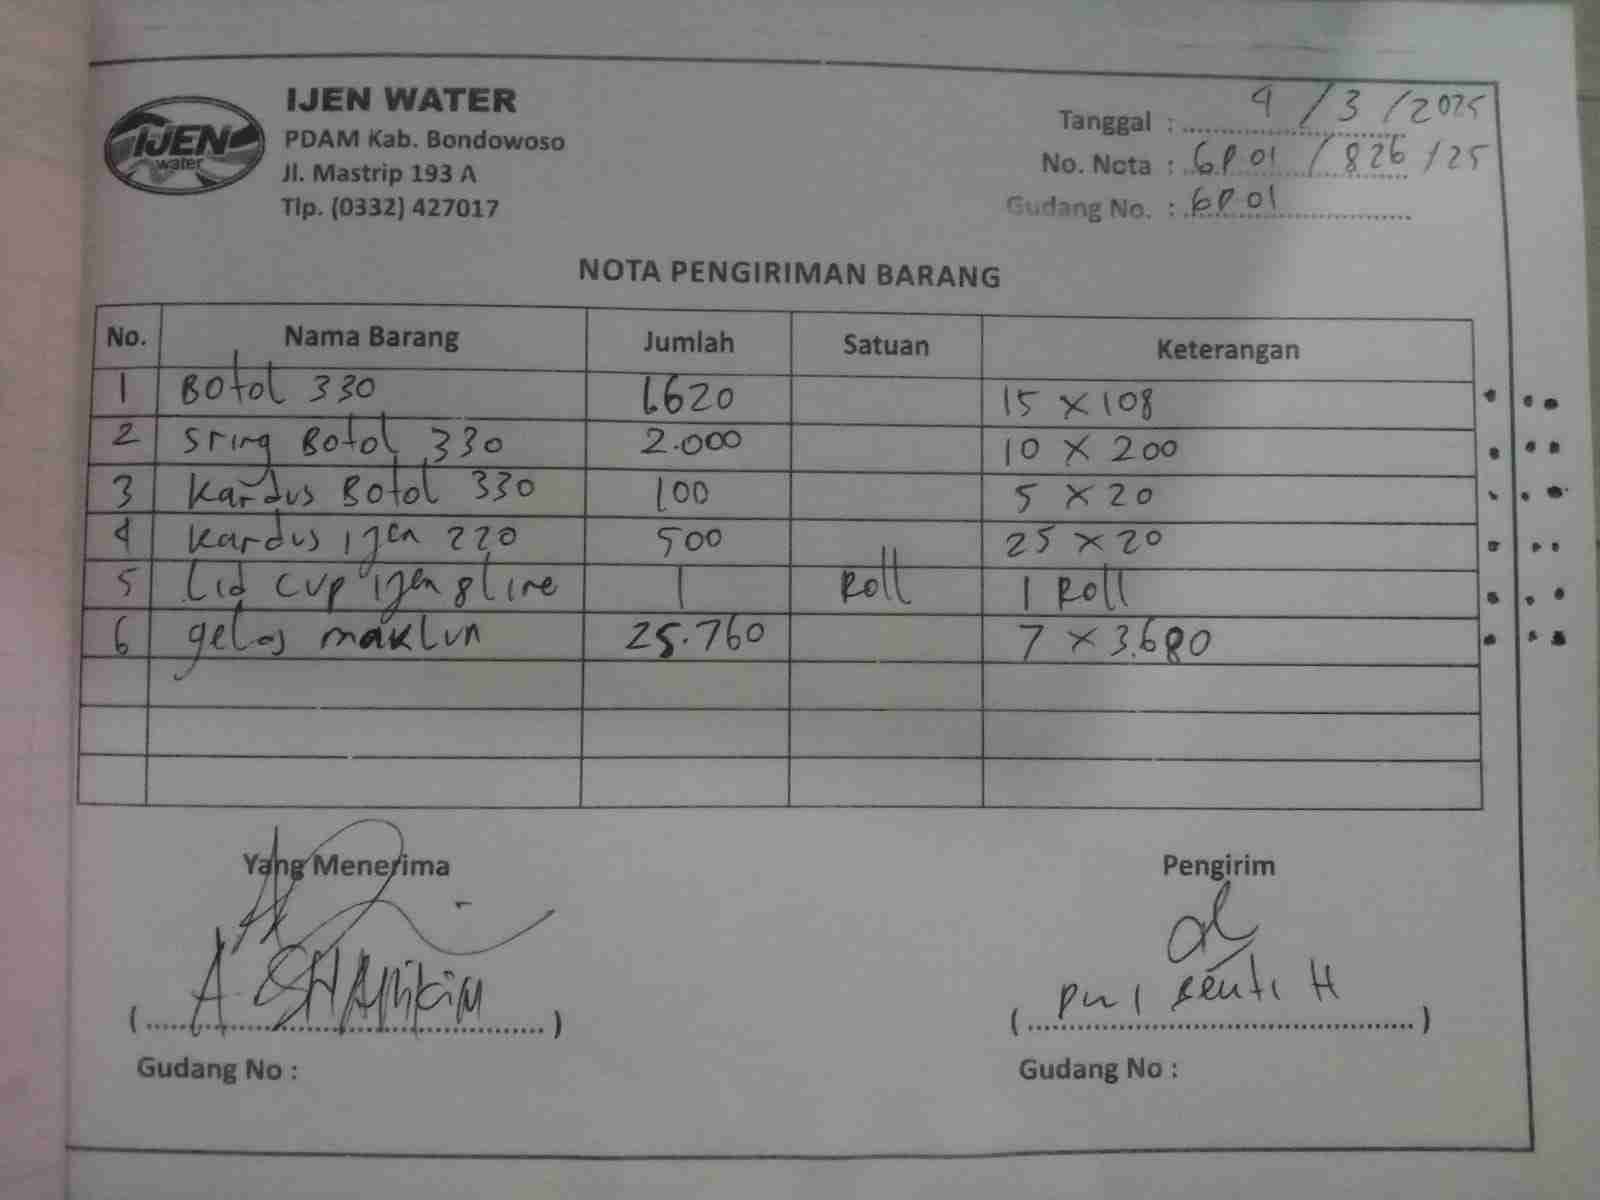 IJEN WATER
IJEN
water
PDAM Kab. Bondowoso
Jl. Mastrip 193 A
Tlp. (0332) 427017
Tanggal : 4 / 3 / 2025
No. Nota : 6P01 / 826 / 25
Gudang No. : 6P01
NOTA PENGIRIMAN BARANG
No. Nama Barang Jumlah Satuan Keterangan
1 Botol 330 1.620 15 x 108
2 Sring Botol 330 2.000 10 x 200
3 Kardus Botol 330 100 5 x 20
4 Kardus ijen 220 500 25 x 20
5 Lid cup ijen 8 line 1 Roll 1 Roll
6 gelas maklun 25.760 7 x 3.680
Yang Menerima Pengirim
(A. ) ( H)
Gudang No : Gudang No :